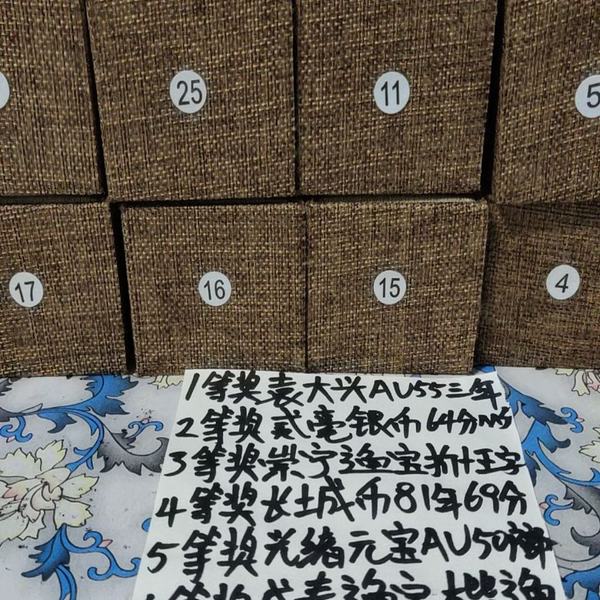 25
11
5
17
16
15
4
1等奖袁大头AU55三年
2等奖贰毫银币64分MS
3等奖崇宁通宝折十
4等奖长城币81年69分
5等奖光绪元宝AU50
等奖